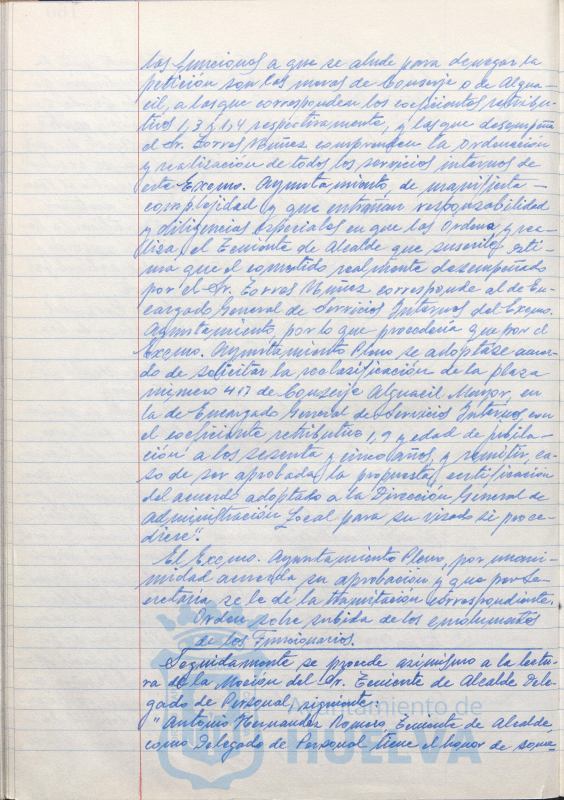 las funciones a que se alude para denegar la
petición son las meras de Conserje o de Algua-
cil, a las que corresponden los coeficientes retribu-
tivos 1,3 y 1,4 respectivamente, y las que desempeña
el Sr. Torres Núñez comprenden la ordenación
y realización de todos los servicios internos de
este Excmo. Ayuntamiento, de manifiesta
complejidad y que entrañan responsabilidad
y diligencias especiales en que las ordena y rea-
liza, el Teniente de Alcalde que suscribe esti-
ma que el cometido realmente desempeñado
por el Sr. Torres Núñez corresponde al de En-
cargado General de Servicios Internos del Excmo.
Ayuntamiento, por lo que procedería que por el
Excmo. Ayuntamiento Pleno se adoptase acuer-
do de solicitar la reclasificación de la plaza
número 417 de Conserje Alguacil Mayor, en
la de Encargado General de Servicios Internos con
el coeficiente retributivo 1,9 y edad de jubila-
ción a los sesenta y cinco años, y remitir, ca-
so de ser aprobada la propuesta, certificación
del acuerdo adoptado a la Dirección General de
Administración Local para su visado si proce-
diere".
El Excmo. Ayuntamiento Pleno, por unani-
midad acuerda su aprobación y que por Se-
cretaría se le dé la tramitación correspondiente.
Orden sobre subida de los emolumentos
de los Funcionarios.
Seguidamente se procede asimismo a la lectu-
ra de la Moción del Sr. Teniente de Alcalde Dele-
gado de Personal, siguiente:
"Antonio Hernandez Romero, Teniente de Alcalde,
como Delegado de Personal tiene el honor de some-
Ayuntamiento de
HUELVA